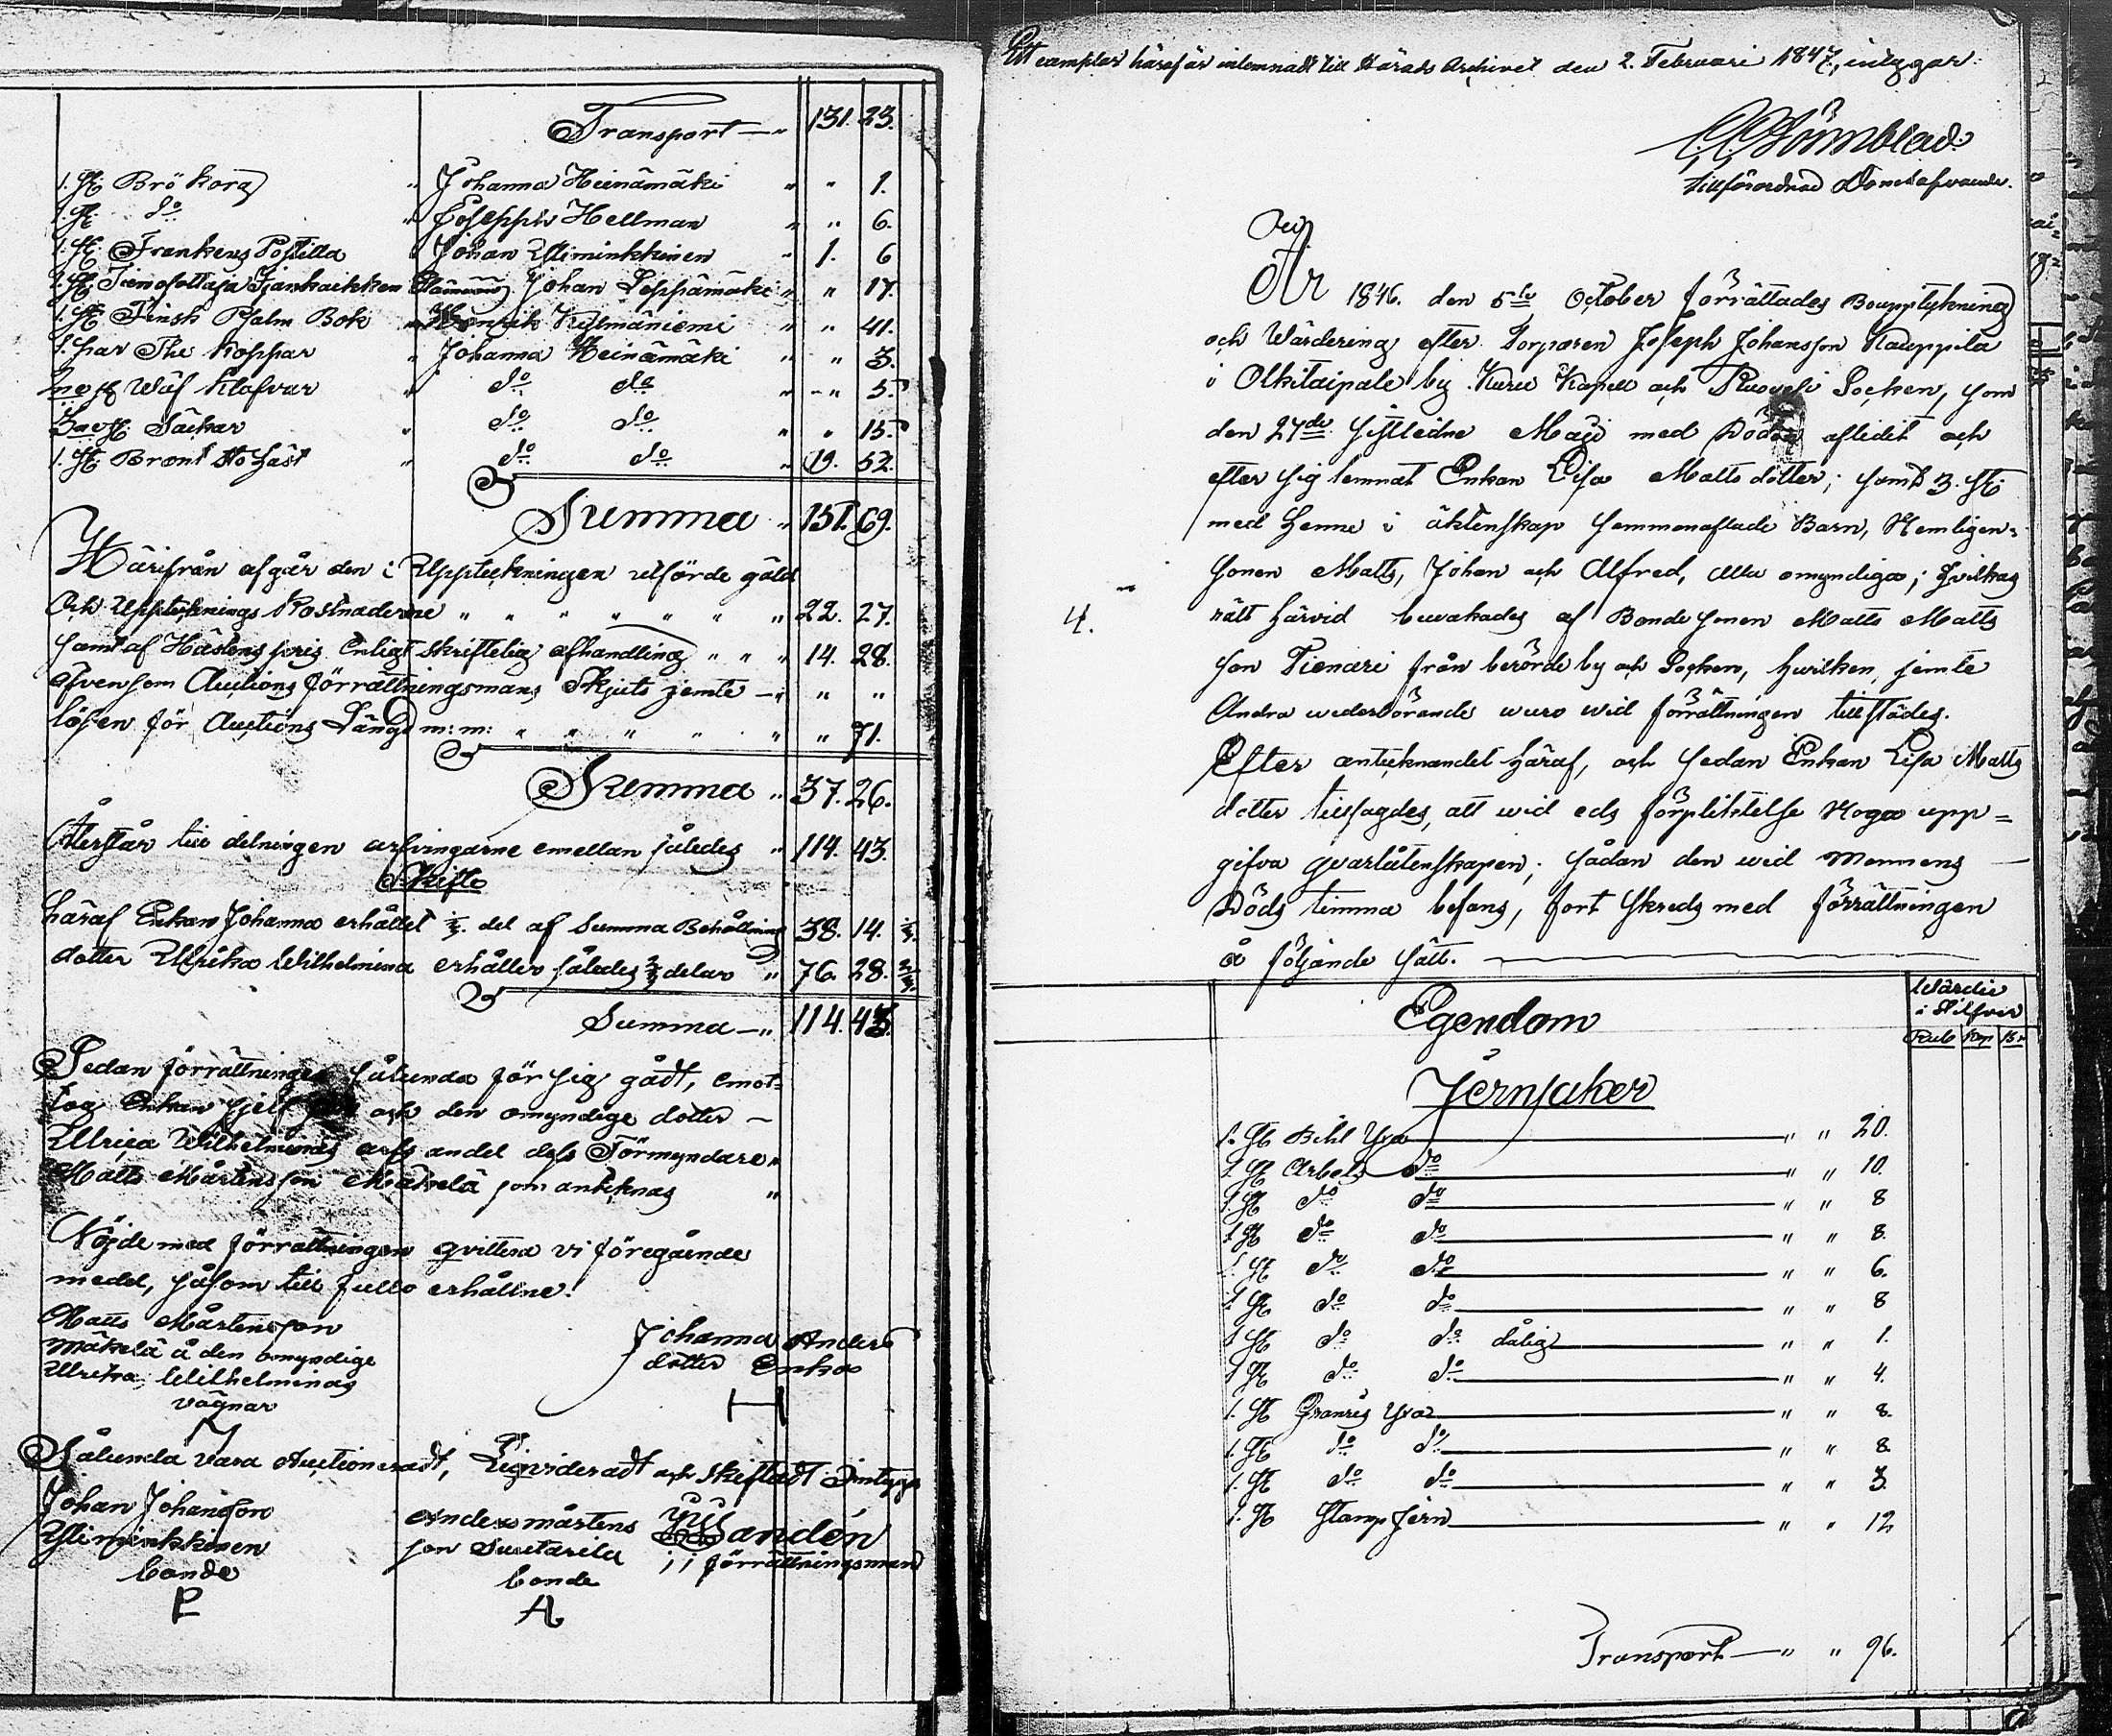 Transport — " 131. 23.
1. St. Brö korg " Johanna Heinämäki " " 1.
1. St. do " Josephh Hellman " " 6.
1. St. Frankens Postilla " Johan Yliminkkinen " 1. 6
1. St. Johan Leppämäki " " 17.
1. St. Finsk Psalm Bok " Henrik Kylmäniemi " " 41.
1. par The koppar " Johanna Heinämäki " " 3.
2ne st Wäf klafvar " do do " " 5.
3ne st. Säckar " do do " " 15.
1. St. Brunt Sto häst " do do " 19. 52.
Summa " 151. 69.
Härifrån afgår den i Uppteckningen utförde gäld
Och Upptecknings Kostnaderne " " " " " " " 22. 27.
samt af Hästens pris Enligt skriftelig afhandling " " " 14. 28.
äfvensom Auctions förrättningsmans Skjuts jemte — " " "
lösen för Auctions Längd m: m: " " " " " " " 71.
Summa " 37. 26.
Återstår till delningen arfvingarne emellan således " 114. 43.
Skifte
häraf Enkan Johanna erhållet 1/3. del af Summa Behållning 38. 14. 1/3.
dotter Ullrika Wilhelmina erhåller således 2/3 delar " 76. 28. 2/3.
Summa — " 114. 43.
Sedan förrättningen sålunda för sig gådt, emot-
tog Enkan sjelf och den omyndige dotter —
Ullrica Wilhelminas arfs andel dess Förmyndare "
Matts Mårtensson Mäkelä som antecknas "
Nöjde med förrättningen qvittera vi föregående
medel, såsom till fullo erhållne.
Matts Mårtensson
Mäkelä å den omyndige
Ulrika Wilhelminas
vägnar
Johanna Anders
dotter Enka
H
Sålunda vara Auctioneradt, Liqvideradt och skiftadt Intyga
Johan Johansson
Yliminkkinen
bonde
P
Anders mårtens
son Suutarila
bonde
A
Sandén
förrättningsman
Ett exemplar häraf är inlemnadt till Härads Archivet den 2. Februari 1847, intygar:
Törnblad
tillförordnad Domhafvande.
År 1846. den 5te October förrättades Bouppteckning
och Wärdering efter Torparen Joseph Johansson Kauppila
i Olkitaipale by Kuru Kapell och Ruovesi Socken, som
den 27de sistledne Maji med Döden aflidit och
efter sig lemnat Enkan Lisa Mattsdotter; samt 3. st.
med henne i äktenskap sammanaflade Barn, Nemligen:
Sonen Matts, Johan och Alfred, alla omyndiga; hvilkas
4.
rätt härvid bevakades af Bonde sonen Matts Matts
son Tienari från berörde by och Socken, hvilken jemte
Andra vederbörande wuro wid förrättningen tillstädes.
Efter antecknandet häraf, och sedan Enkan Lisa Matts
dotter tillsagdes, att wid eds förpliktelse Noga upp=
gifva qvarlåtenskapen; sådan den wid Mannens
Döds timma befans, fort skreds med förrättningen
å följande sätt.
Egendom
Wärdie
i Silfver
Rub Kop Br
Jernsaker
1. St Bihl Yxa — " " 20.
1. St Arbets do — " " 10.
1. St do do — " " 8
1. St do do — " " 8.
1. St do do — " " 6.
1. St do do — " " 8
1. St do do dålig — " " 1.
1. St do do — " " 4.
1. St Granris Yxa — " " 8.
1. St do do — " " 8.
1. St do do — " " 3.
1. St Stamp jern — " " 12
Transport — " " 96.